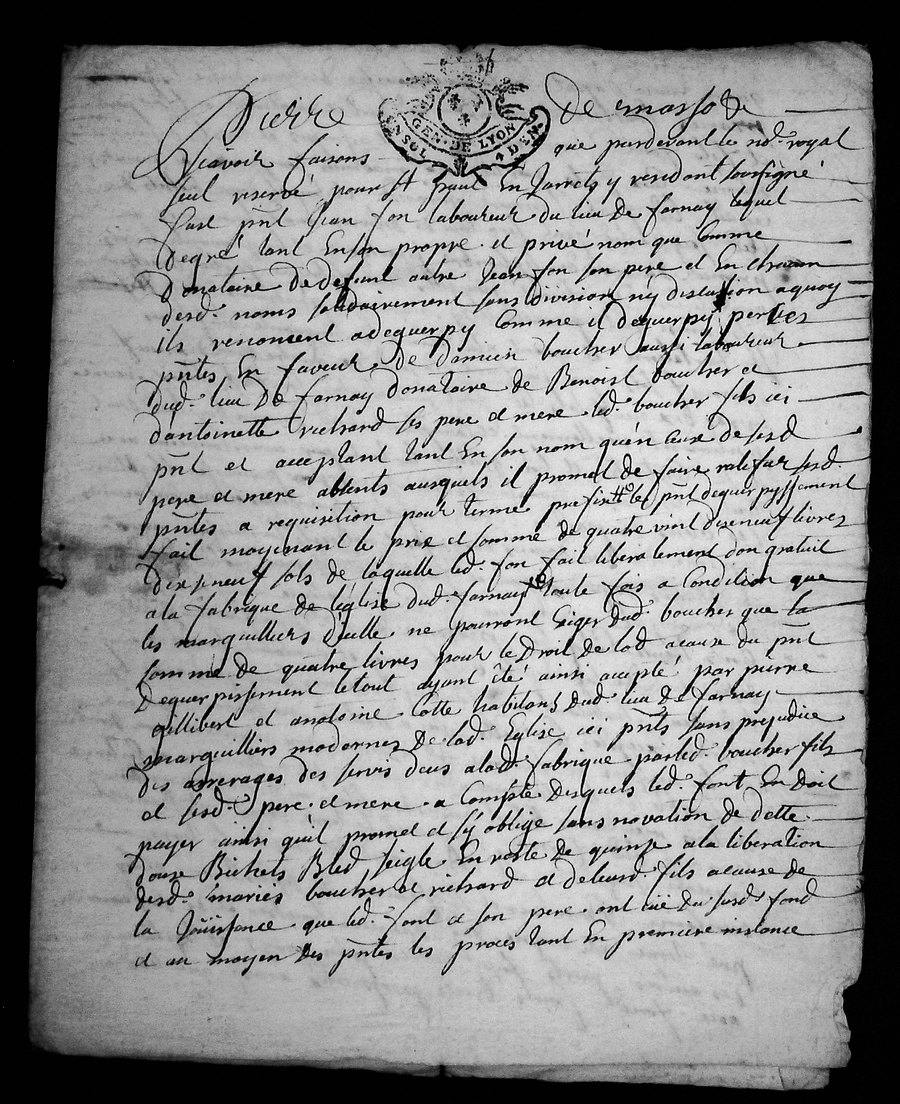 GEN. DE LYON
UN SOL 4 DEN.
Pierre De masso &
Scavoir faisons que pardevant le no.re royal
seul reservé pour St paul En Jarrets y residant soussigné
fust pnt Jean fon laboureur du lieu de farnay lequel
De gré tant En son propre et privé nom que Comme
Donataire De defunt autre Jean fon son pere et En chacun
desd. noms solidairement sans division ny discution a quoy
ils renoncent a deguerpy Comme il deguerpy par ces
pntes En faveur de damien boucher aussi laboureur
dud. lieu De farnay Donataire de Benoist boucher et
d'antoinette richard ses pere et mere led. boucher fils ici
pnt et acceptant tant En son nom qu'en Ceux de sesd
pere et mere absents ausquels il promet de faire ratifier sesd.
pntes a requisition pour terme prefix le pnt deguerpissement
fait moyenant le prix et somme de quatre vint dixneuf livres
dix neuf sols de laquelle led. fon fait liberalement don gratuit
a la fabrique de leglise dud. farnay toute fois a Condition que
les marguilliers d'icelle ne pourront Exiger dud. boucher que la
somme de quatre livres pour le Droit de lod a cause du pnt
Deguerpissement le tout ayant été ainsi accepté par pierre
gillibert et anthoine Cotte habitans dud. lieu de farnay
marguilliers modernes de lad. Eglise ici pnts sans prejudice
des arrerages des servis deus a lad. fabrique par led. boucher fils
et sesd. pere et mere a Compte desquels led. font En doit
payer ainsi qu'il promet et s'y oblige sans novation de dette
douze Bichets Bled seigle En reste de quinze a la liberation
desd. mariés boucher et richard et de leurd. fils a cause de
la Joüissance que led. font et son pere ont eüe du susd. fond
et au moyen des pntes les proces tant En premiere instance